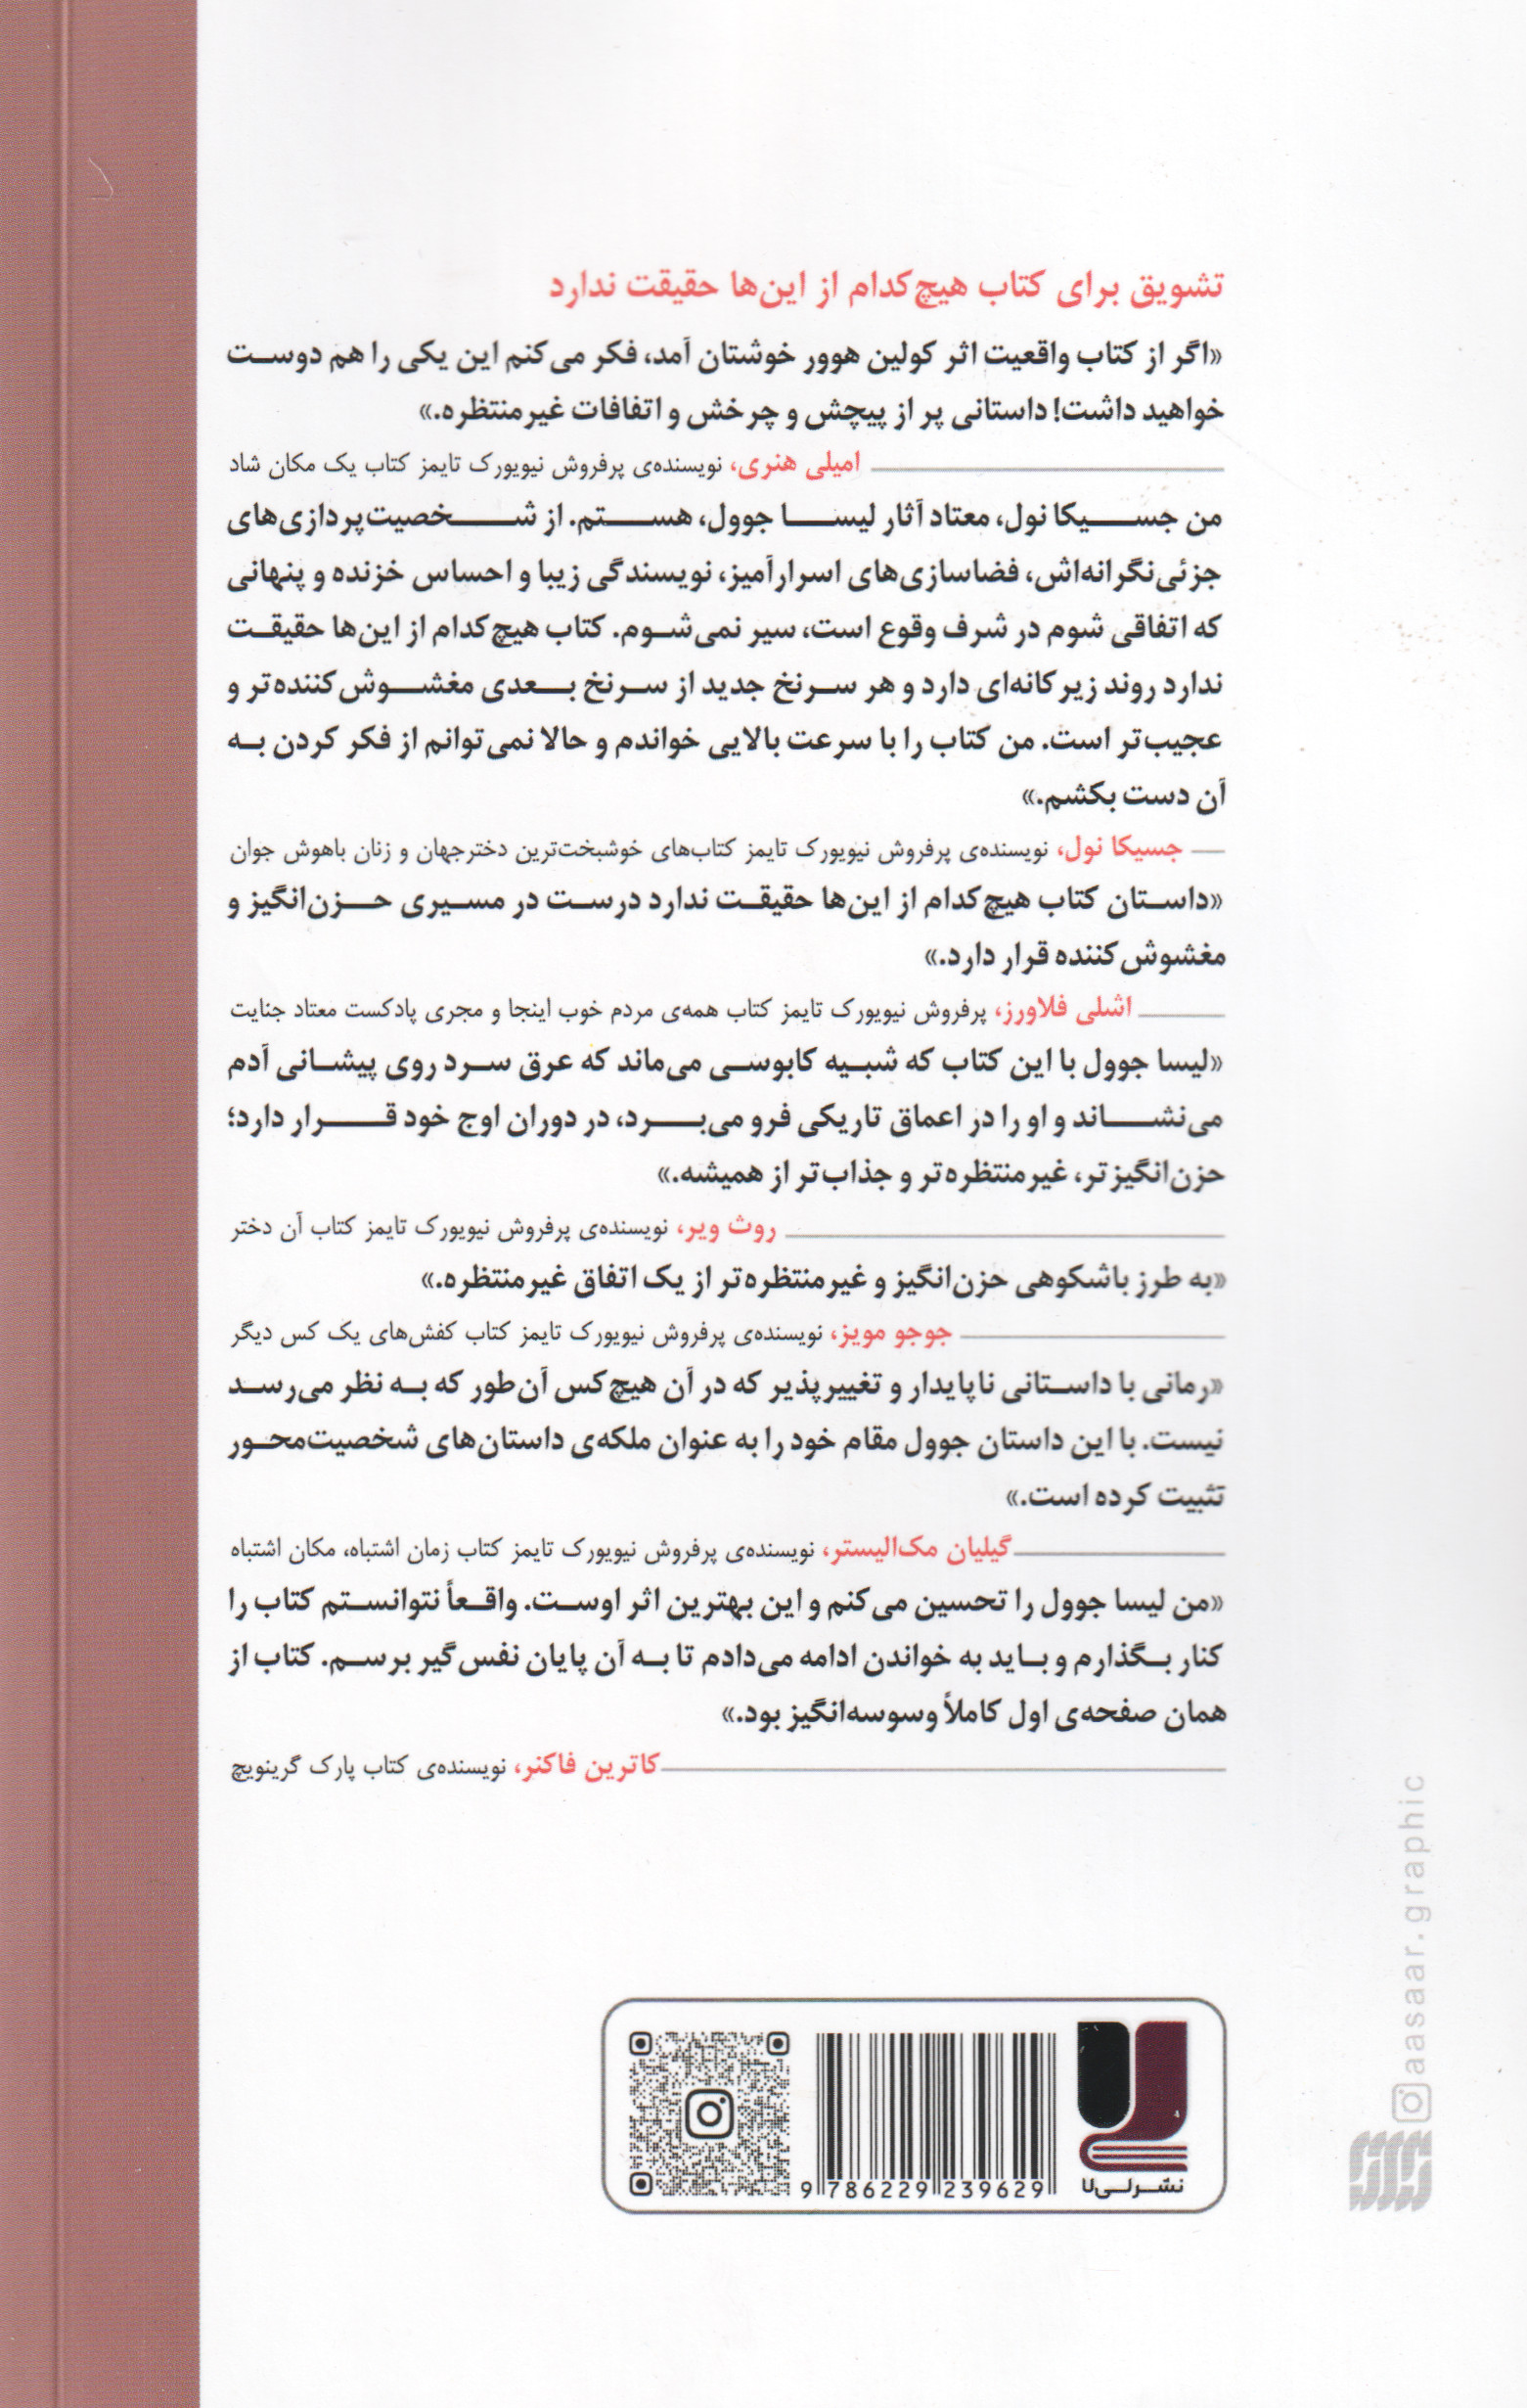 تشویق برای کتاب هیچ‌کدام از این‌ها حقیقت ندارد
«اگر از کتاب واقعیت اثر کولین هوور خوشتان آمد، فکر می‌کنم این یکی را هم دوست
خواهید داشت! داستانی پر از پیچش و چرخش و اتفاقات غیرمنتظره.»
امیلی هنری، نویسنده‌ی پرفروش نیویورک تایمز کتاب یک مکان شاد
من جسیکا نول، معتاد آثار لیسا جوول، هستم. از شخصیت‌پردازی‌های
جزئی‌نگرانه‌اش، فضاسازی‌های اسرارآمیز، نویسندگی زیبا و احساس خزنده و پنهانی
که اتفاقی شوم در شرف وقوع است، سیر نمی‌شوم. کتاب هیچ‌کدام از این‌ها حقیقت
ندارد روند زیرکانه‌ای دارد و هر سرنخ جدید از سرنخ بعدی مغشوش‌کننده‌تر و
عجیب‌تر است. من کتاب را با سرعت بالایی خواندم و حالا نمی‌توانم از فکر کردن به
آن دست بکشم.»
جسیکا نول، نویسنده‌ی پرفروش نیویورک تایمز کتاب‌های خوشبخت‌ترین دخترجهان و زنان باهوش جوان
«داستان کتاب هیچ‌کدام از این‌ها حقیقت ندارد درست در مسیری حزن‌انگیز و
مغشوش‌کننده قرار دارد.»
اشلی فلاورز، پرفروش نیویورک تایمز کتاب همه‌ی مردم خوب اینجا و مجری پادکست معتاد جنایت
«لیسا جوول با این کتاب که شبیه کابوسی می‌ماند که عرق سرد روی پیشانی آدم
می‌نشاند و او را در اعماق تاریکی فرو می‌برد، در دوران اوج خود قرار دارد؛
حزن‌انگیزتر، غیرمنتظره‌تر و جذاب‌تر از همیشه.»
روث ویر، نویسنده‌ی پرفروش نیویورک تایمز کتاب آن دختر
«به طرز باشکوهی حزن‌انگیز و غیرمنتظره‌تر از یک اتفاق غیرمنتظره.»
جوجو مویز، نویسنده‌ی پرفروش نیویورک تایمز کتاب کفش‌های یک کس دیگر
«رمانی با داستانی ناپایدار و تغییرپذیر که در آن هیچ‌کس آن‌طور که به نظر می‌رسد
نیست. با این داستان جوول مقام خود را به عنوان ملکه‌ی داستان‌های شخصیت‌محور
تثبیت کرده است.»
گیلیان مک‌الیستر، نویسنده‌ی پرفروش نیویورک تایمز کتاب زمان اشتباه، مکان اشتباه
«من لیسا جوول را تحسین می‌کنم و این بهترین اثر اوست. واقعاً نتوانستم کتاب را
کنار بگذارم و باید به خواندن ادامه می‌دادم تا به آن پایان نفس‌گیر برسم. کتاب از
همان صفحه‌ی اول کاملاً وسوسه‌انگیز بود.»
کاترین فاکنر، نویسنده‌ی کتاب پارک گرینویچ
aasaar.graphic
نشر لی‌لا
9 786229 239629